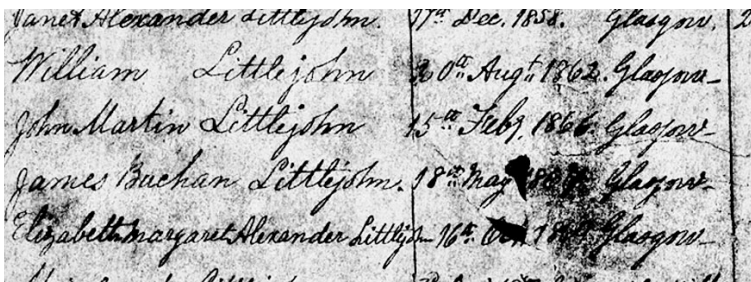 Janet Alexander Littlejohn. 17th Dec. 1858. Glasgow. 2
William Littlejohn 20th Augt 1862. Glasgow
John Martin Littlejohn 15th Feby 1866. Glasgow
James Buchan Littlejohn. 18th May Glasgow
Elizabeth Margaret Alexander Littlejohn 16th Glasgow